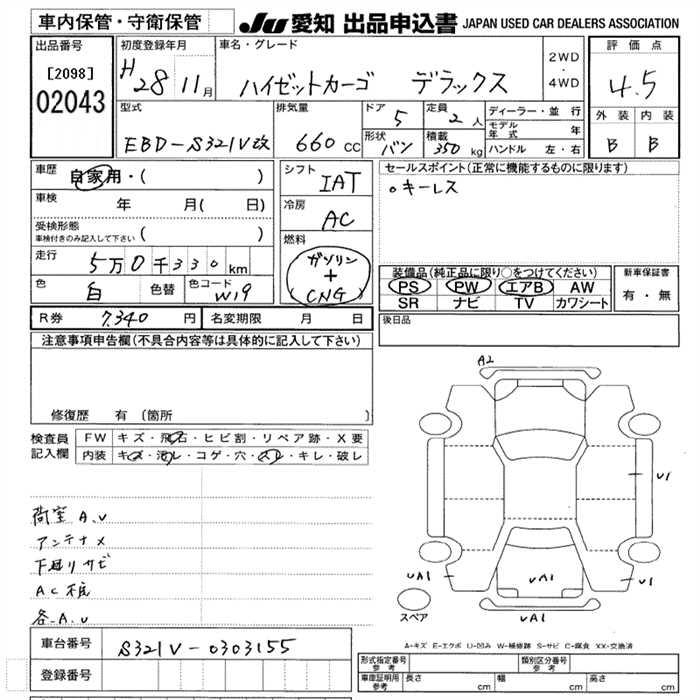 車内保管・守衛保管
JU 愛知 出品申込書 JAPAN USED CAR DEALERS ASSOCIATION
出品番号
[2098]
02043
初度登録年月
H28 11月
車名・グレード
ハイゼットカーゴ デラックス
2WD
・
4WD
評価点
4.5
外装 内装
B B
型式
EBD-S321V改
排気量
660 CC
ドア
5
定員
2人
形状
バン
積載
350kg
ディーラー・並行
モデル年式 年
ハンドル 左・右
車歴
自家用・( )
車検
年 月( 日)
受検形態
車検付きのみ記入して下さい ( )
走行
5万0千330km
色
白
色替
色コード
W19
シフト
IAT
冷房
AC
燃料
ガソリン
+
(CNG)
セールスポイント(正常に機能するものに限ります)
。キーレス
装備品(純正品に限り○をつけてください)
PS PW エアB AW
SR ナビ TV カワシート
新車保証書
有・無
R券 7,340 円 名変期限 月 日
後日品
注意事項申告欄(不具合内容等は具体的に記入して下さい)
修復歴 有(箇所 )
検査員
記入欄
FW キズ・飛石・ヒビ割・リペア跡・X要
内装 キズ・汚レ・コゲ・穴・スレ・キレ・破レ
荷室A.U
アンテナX
下廻りサビ
各A.U
A2
U1
UA1
UA1
U1
UA1
スペア
A-キズ E-エクボ U-凹み W-補修跡 S-サビ C-腐食 XX-交換済
車台番号 S321V-0303155
登録番号
形式指定番号
参考
類別区分番号
参考
車庫証明用
参考
長さ cm 幅 cm 高さ cm